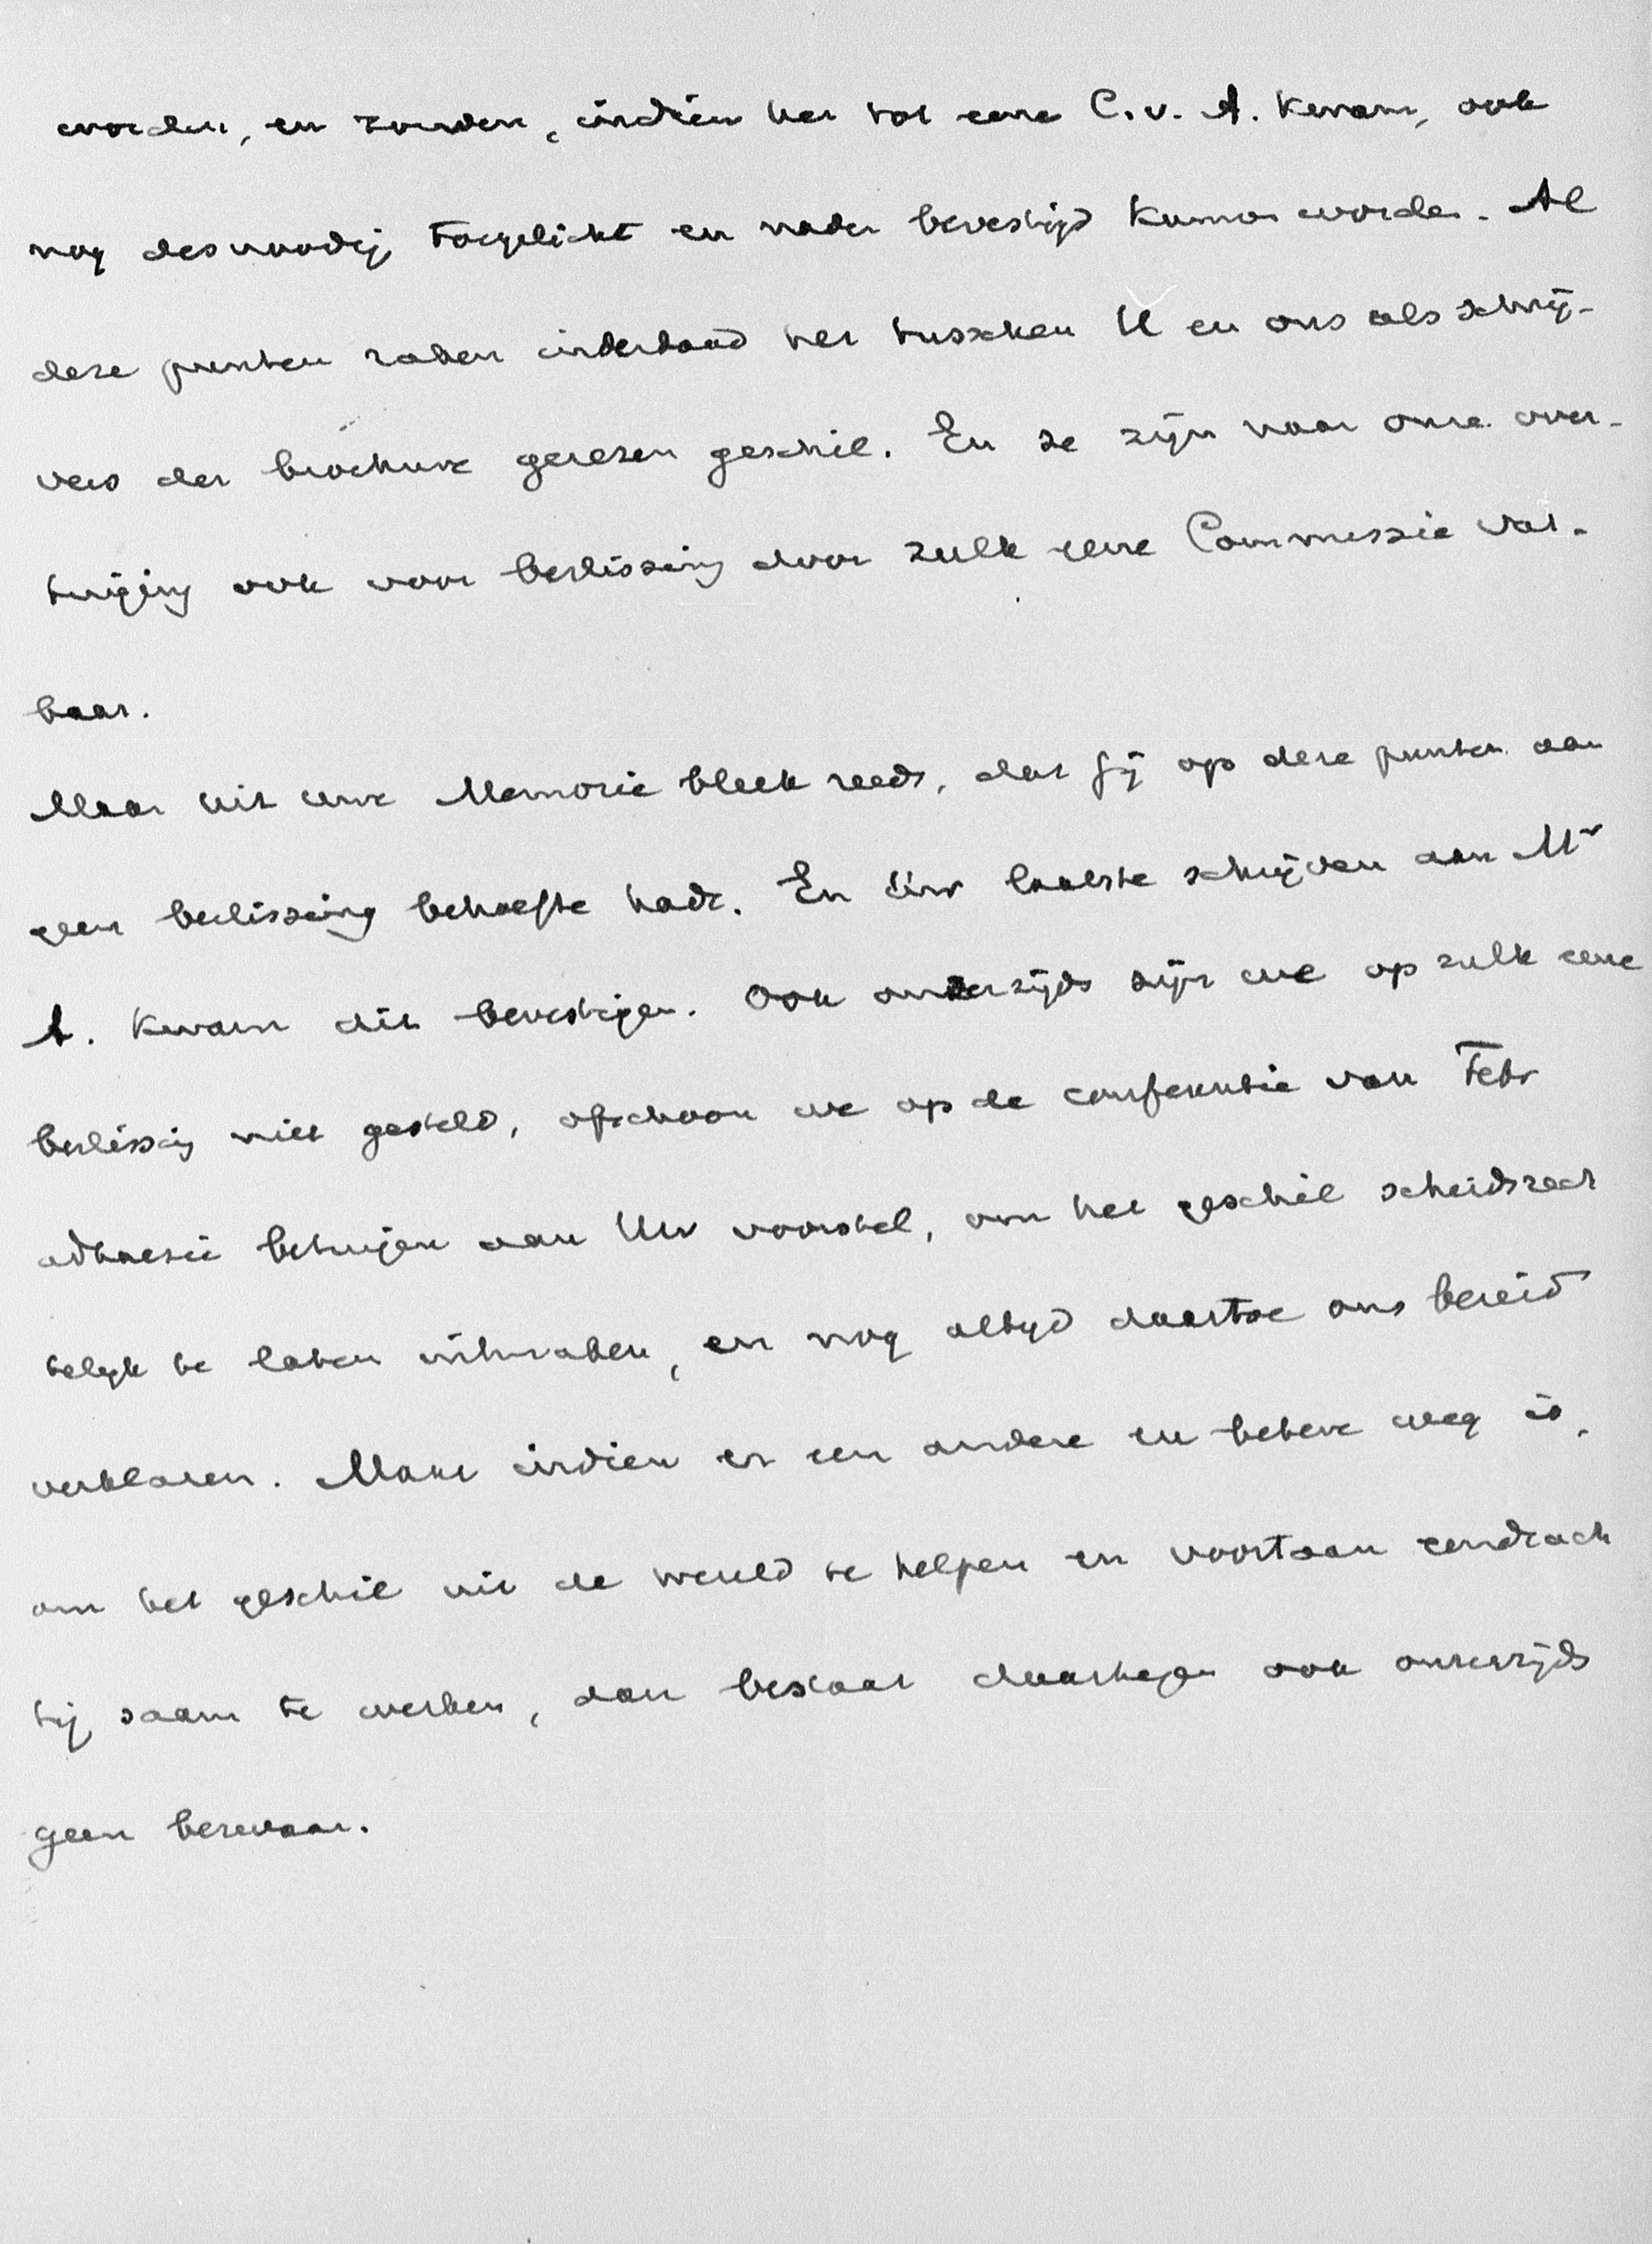 worden, en zouden, indien het tot eene C. v. A. kwam, ook
nog desnoodig toegelicht en nader bevestigd kunnen worden. Al
deze punten raken inderdaad het tusschen U en ons als schrij-
vers der brochure gerezen geschil. En ze zijn naar onze over-
tuiging ook voor beslissing door zulk eene Commissie vat-
baar.
Maar uit uwe Memorie bleek reeds, dat gij op deze punten aan
geen beslissing behoefte hadt. En Uw laatste schrijven aan Mr
A. kwam dit bevestigen. Ook onzerzijds zijn we op zulk eene
beslissing niet gesteld, ofschoon we op de conferentie van Febr
adhaesie betuigen aan Uw voorstel, om het geschil scheidsrech
telijk te laten uitmaken, en nog altijd daartoe ons bereid
verklaren. Maar indien er een andere en betere weg is,
om het geschil uit de wereld te helpen en voortaan eendrach
tig saam te werken, dan bestaat daartegen ook onzerzijds
geen bezwaar.